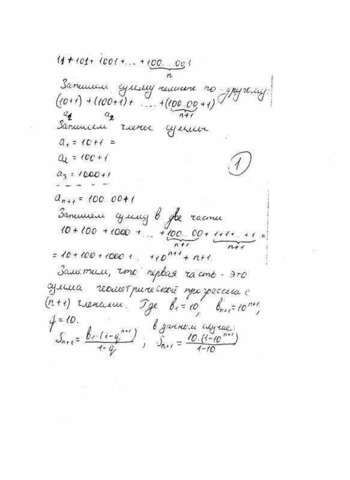 11 + 101 + 1001 + ... + 100...001
n
Запишем сумму немного по-другому:
(10+1) + (100+1) + .... + (100..00+1)
a1 a2 n+1
Запишем члены суммы
a1 = 10+1 =
a2 = 100+1
a3 = 1000+1
1
- - - - -
an+1 = 100..00+1
Запишем сумму в две части
10 + 100 + 1000 + ... + 100...00 + 1+1+...+1 =
n+1 n+1
= 10 + 100 + 1000 + ... + 10^n+1 + n+1.
Заметим, что первая часть - это
сумма геометрической прогрессии с
(n+1) членами. Где b1 = 10, bn+1 = 10^n+1,
q = 10. в данном случае:
Sn+1 = b1·(1-q^n+1)/1-q , Sn+1 = 10·(1-10^n+1)/1-10